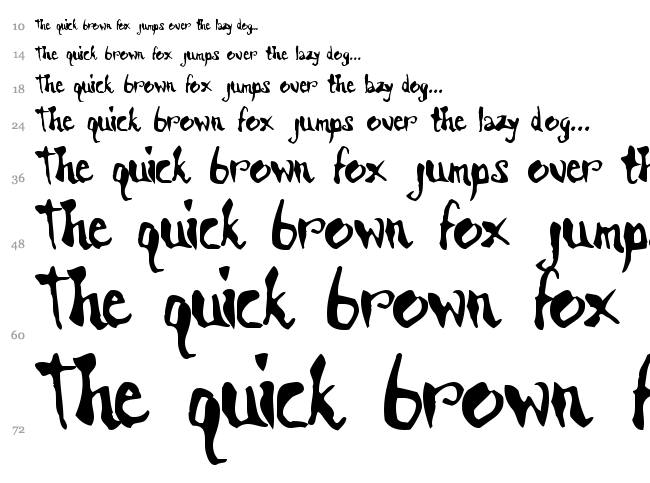 10 The quick brown fox jumps over the lazy dog...
14 The quick brown fox jumps over the lazy dog...
18 The quick brown fox jumps over the lazy dog...
24 The quick brown fox jumps over the lazy dog...
36 The quick brown fox jumps over th
48 The quick brown fox jump
60 The quick brown fox
72 The quick brown f